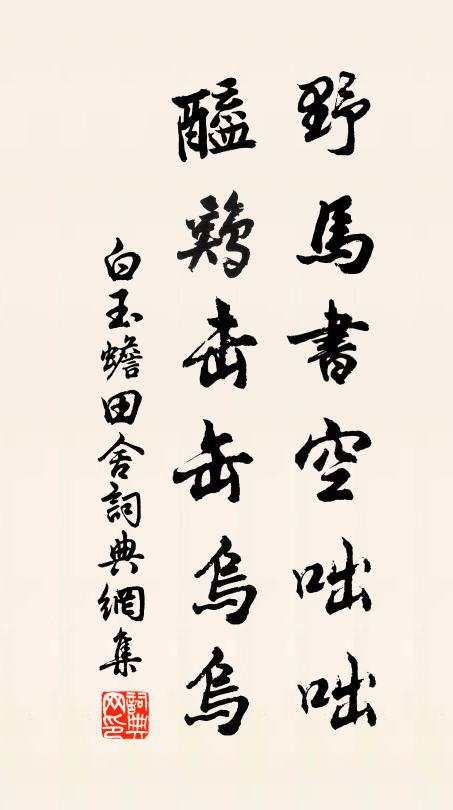 野馬書空咄咄
醯鷄击缶烏烏
白玉蟾田舍詞典網集
詞典网印